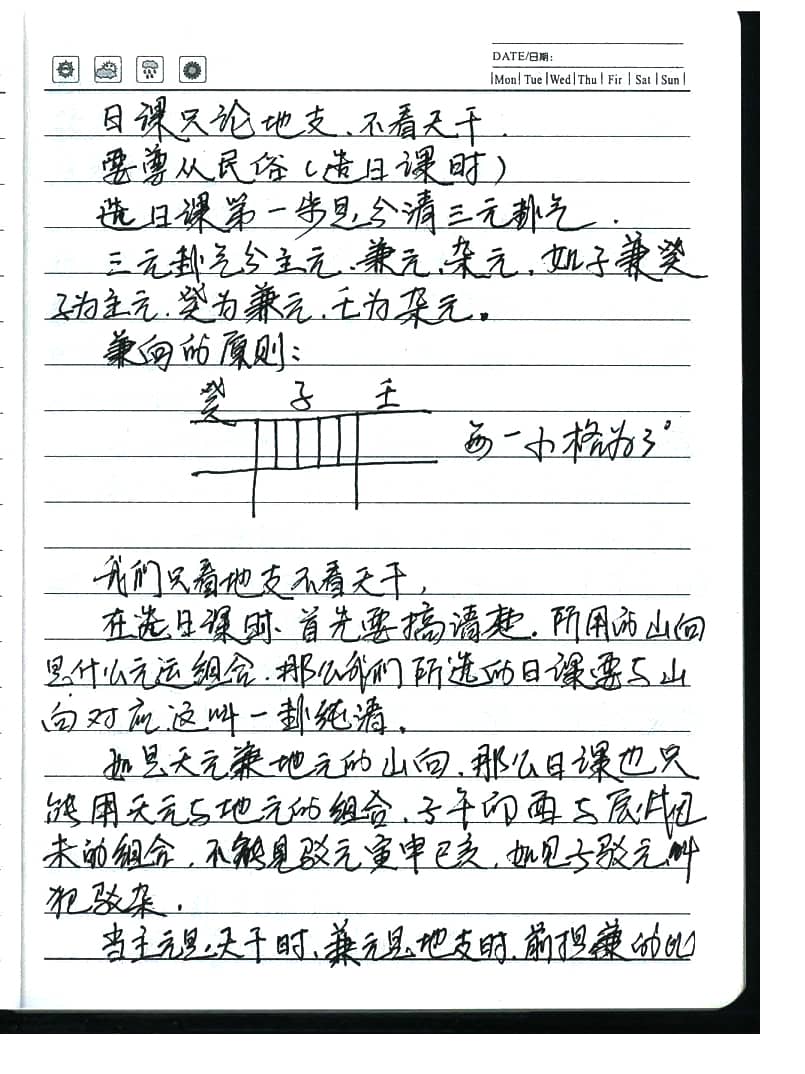 DATE/日期:
Mon Tue Wed Thu Fir Sat Sun
日课只论地支、不看天干.
要尊从民俗(选日课时)
选日课第一步是分清三元卦气.
三元卦气分主元、兼元、杂元,如子兼癸
子为主元,癸为兼元,壬为杂元。
兼向的原则:
癸 子 壬
每一小格为3°
我们只看地支不看天干,
在选日课时、首先要搞清楚.所用的山向
是什么元运组合.那么我们所选的日课要与山
向对应这叫一卦纯清.
如是天元兼地元的山向,那么日课也只
能用天元与地元的组合.子午卯酉与辰戌丑
未的组合,不能见驳元寅申巳亥,如见与驳元叫
犯驳杂.
当主元是天干时、兼元是地支时.前担兼的